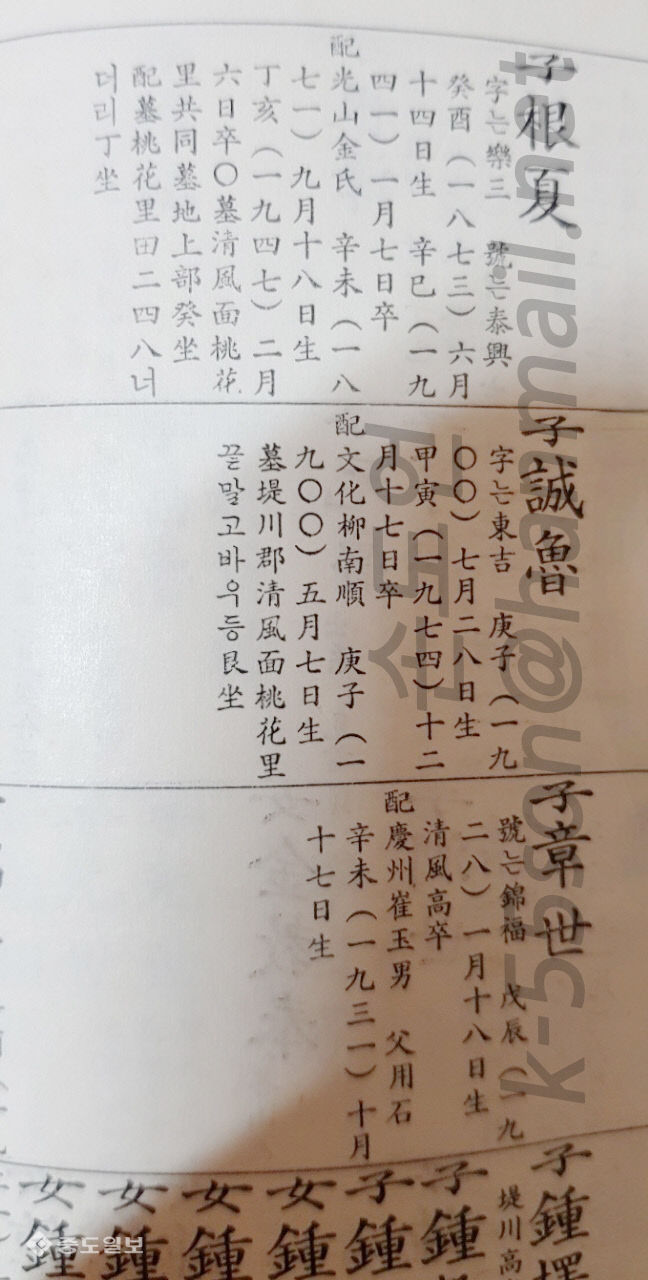 子根夏
字는樂三 號는泰興
癸酉(一八七三)六月
十四日生 辛巳(一九
四一)一月七日卒
配光山金氏 辛未(一八
七一)九月十八日生
丁亥(一九四七)二月
六日卒○墓清風面桃花
里共同墓地上部癸坐
配墓桃花里田二四八너
더리丁坐
子誠魯
字는東吉 庚子(一九
〇〇)七月二八日生
甲寅(一九七四)十二
月十七日卒
配文化柳南順 庚子(一
九〇〇)五月七日生
墓堤川郡清風面桃花里
끝말고바우등艮坐
子章世
號는錦福 戊辰(一九
二八)一月十八日生
清風高卒
配慶州崔玉男 父用石
辛未(一九三一)十月
十七日生
子鍾
堤川高
子鍾
子鍾
女鍾
女鍾
女鍾
女鍾
k-55son@hanmail.net
손도언
중도일보